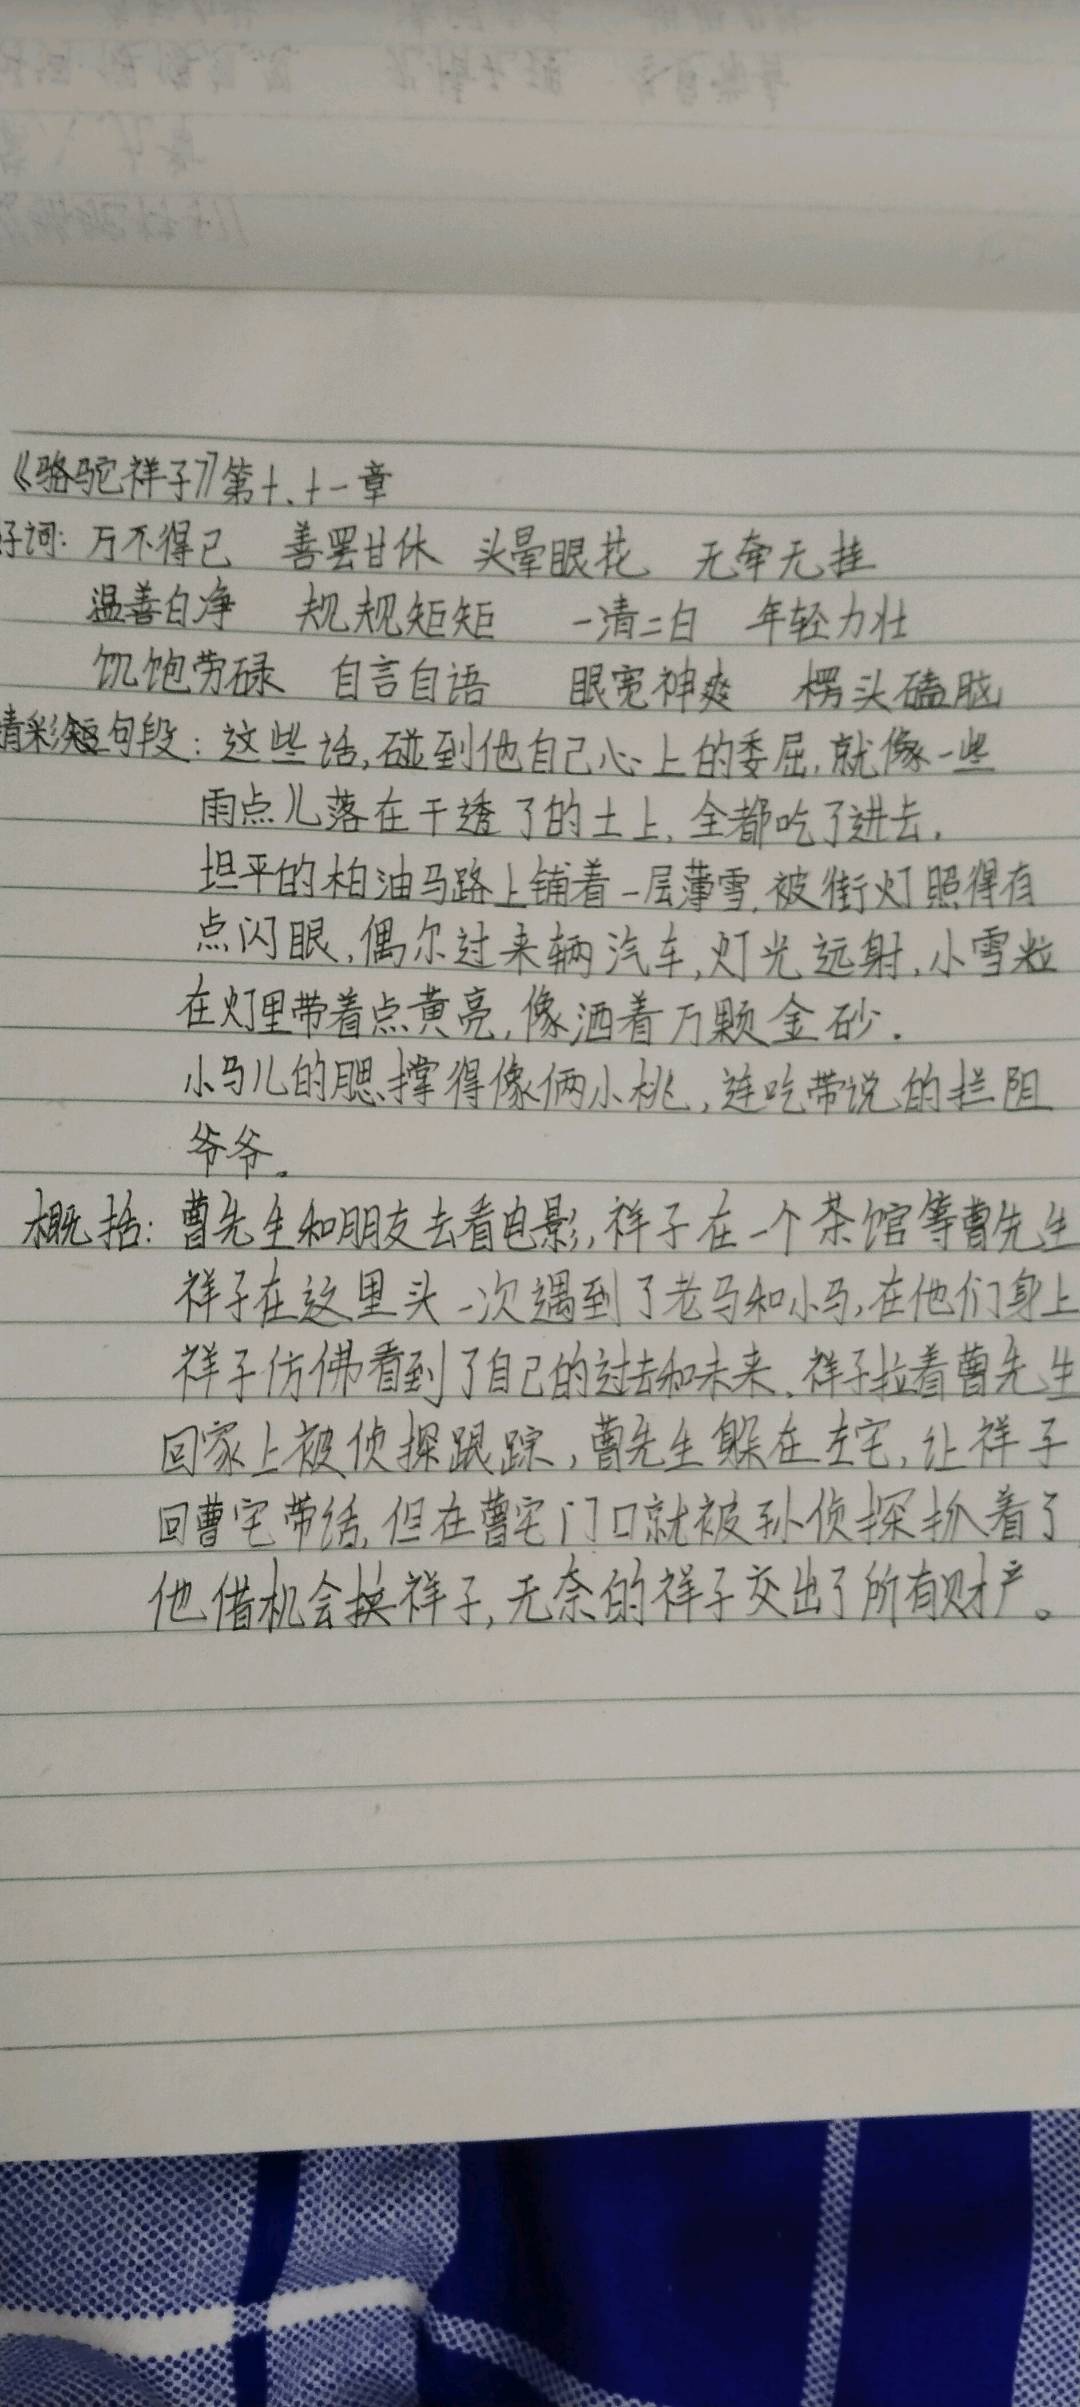 《骆驼祥子》第十、十一章
好词：万不得已 善罢甘休 头晕眼花 无牵无挂
温善白净 规规矩矩 一清二白 年轻力壮
饥饱劳碌 自言自语 眼宽神爽 楞头磕脑
精彩短句段：这些话，碰到他自己心上的委屈，就像一些
雨点儿落在干透了的土上，全都吃了进去。
坦平的柏油马路上铺着一层薄雪，被街灯照得有
点闪眼，偶尔过来辆汽车，灯光远射，小雪粒
在灯里带着点黄亮，像洒着万颗金砂。
小马儿的腮撑得像俩小桃，连吃带说的拦阻
爷爷。
概括：曹先生和朋友去看电影，祥子在一个茶馆等曹先生
祥子在这里头一次遇到了老马和小马，在他们身上
祥子仿佛看到了自己的过去和未来，祥子拉着曹先生
回家上被侦探跟踪，曹先生躲在左宅，让祥子
回曹宅带话，但在曹宅门口就被孙侦探抓着了
他借机会挨祥子，无奈的祥子交出了所有财产。